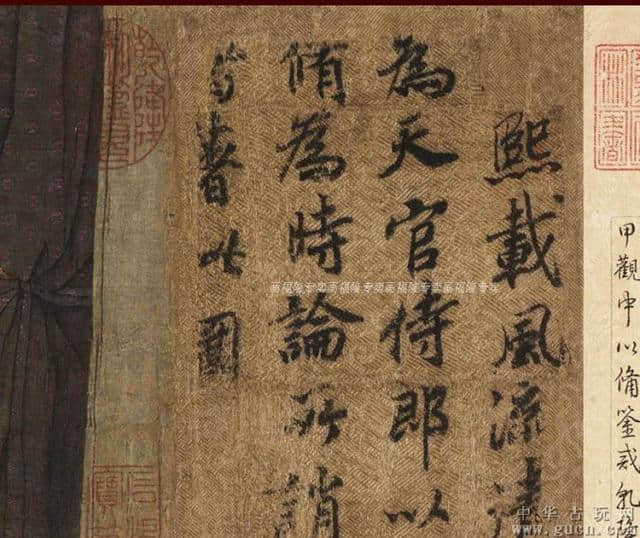 甲觀中以備鋻戒乹隆
熙載風流清
為天官侍郎以
脩為時論所誚
著此圖
中华古玩网
www.gucn.com